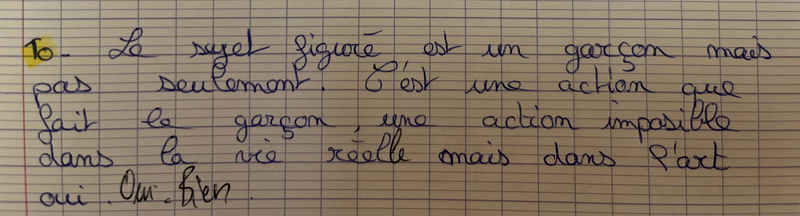 To - Le sujet figuré est un garçon mais
pas seulement. C'est une action que
fait le garçon, une action imposible
dans la vie réelle mais dans l'art
oui. Oui. Bien.